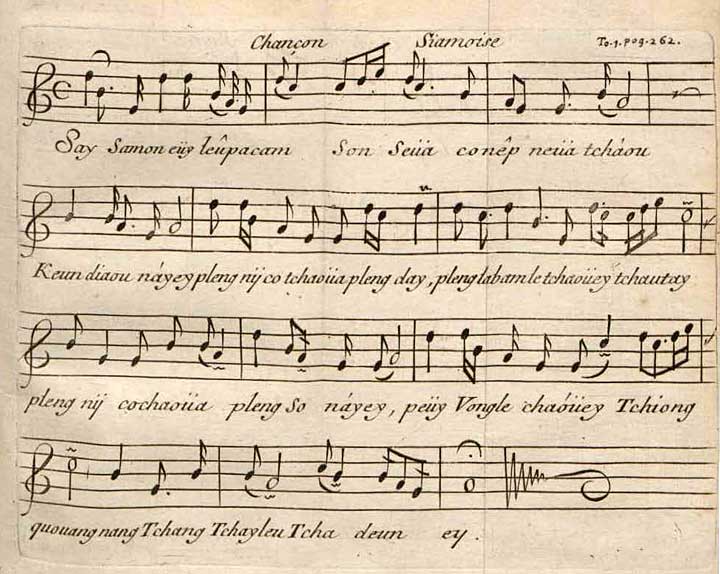 Chançon Siamoise To.1.pog.262.
Say Samon eüy leûpacam Son Seüa conêp neüa tcháou
Keun diaou náyey pleng nij co tchaoüa pleng day, pleng labam le tchaoüey tchautay
pleng nij cochaoüa pleng So náyey, peüy Vongle chaóüey Tchiong
quouang nang Tchang Tchayleu Tcha deun ey.